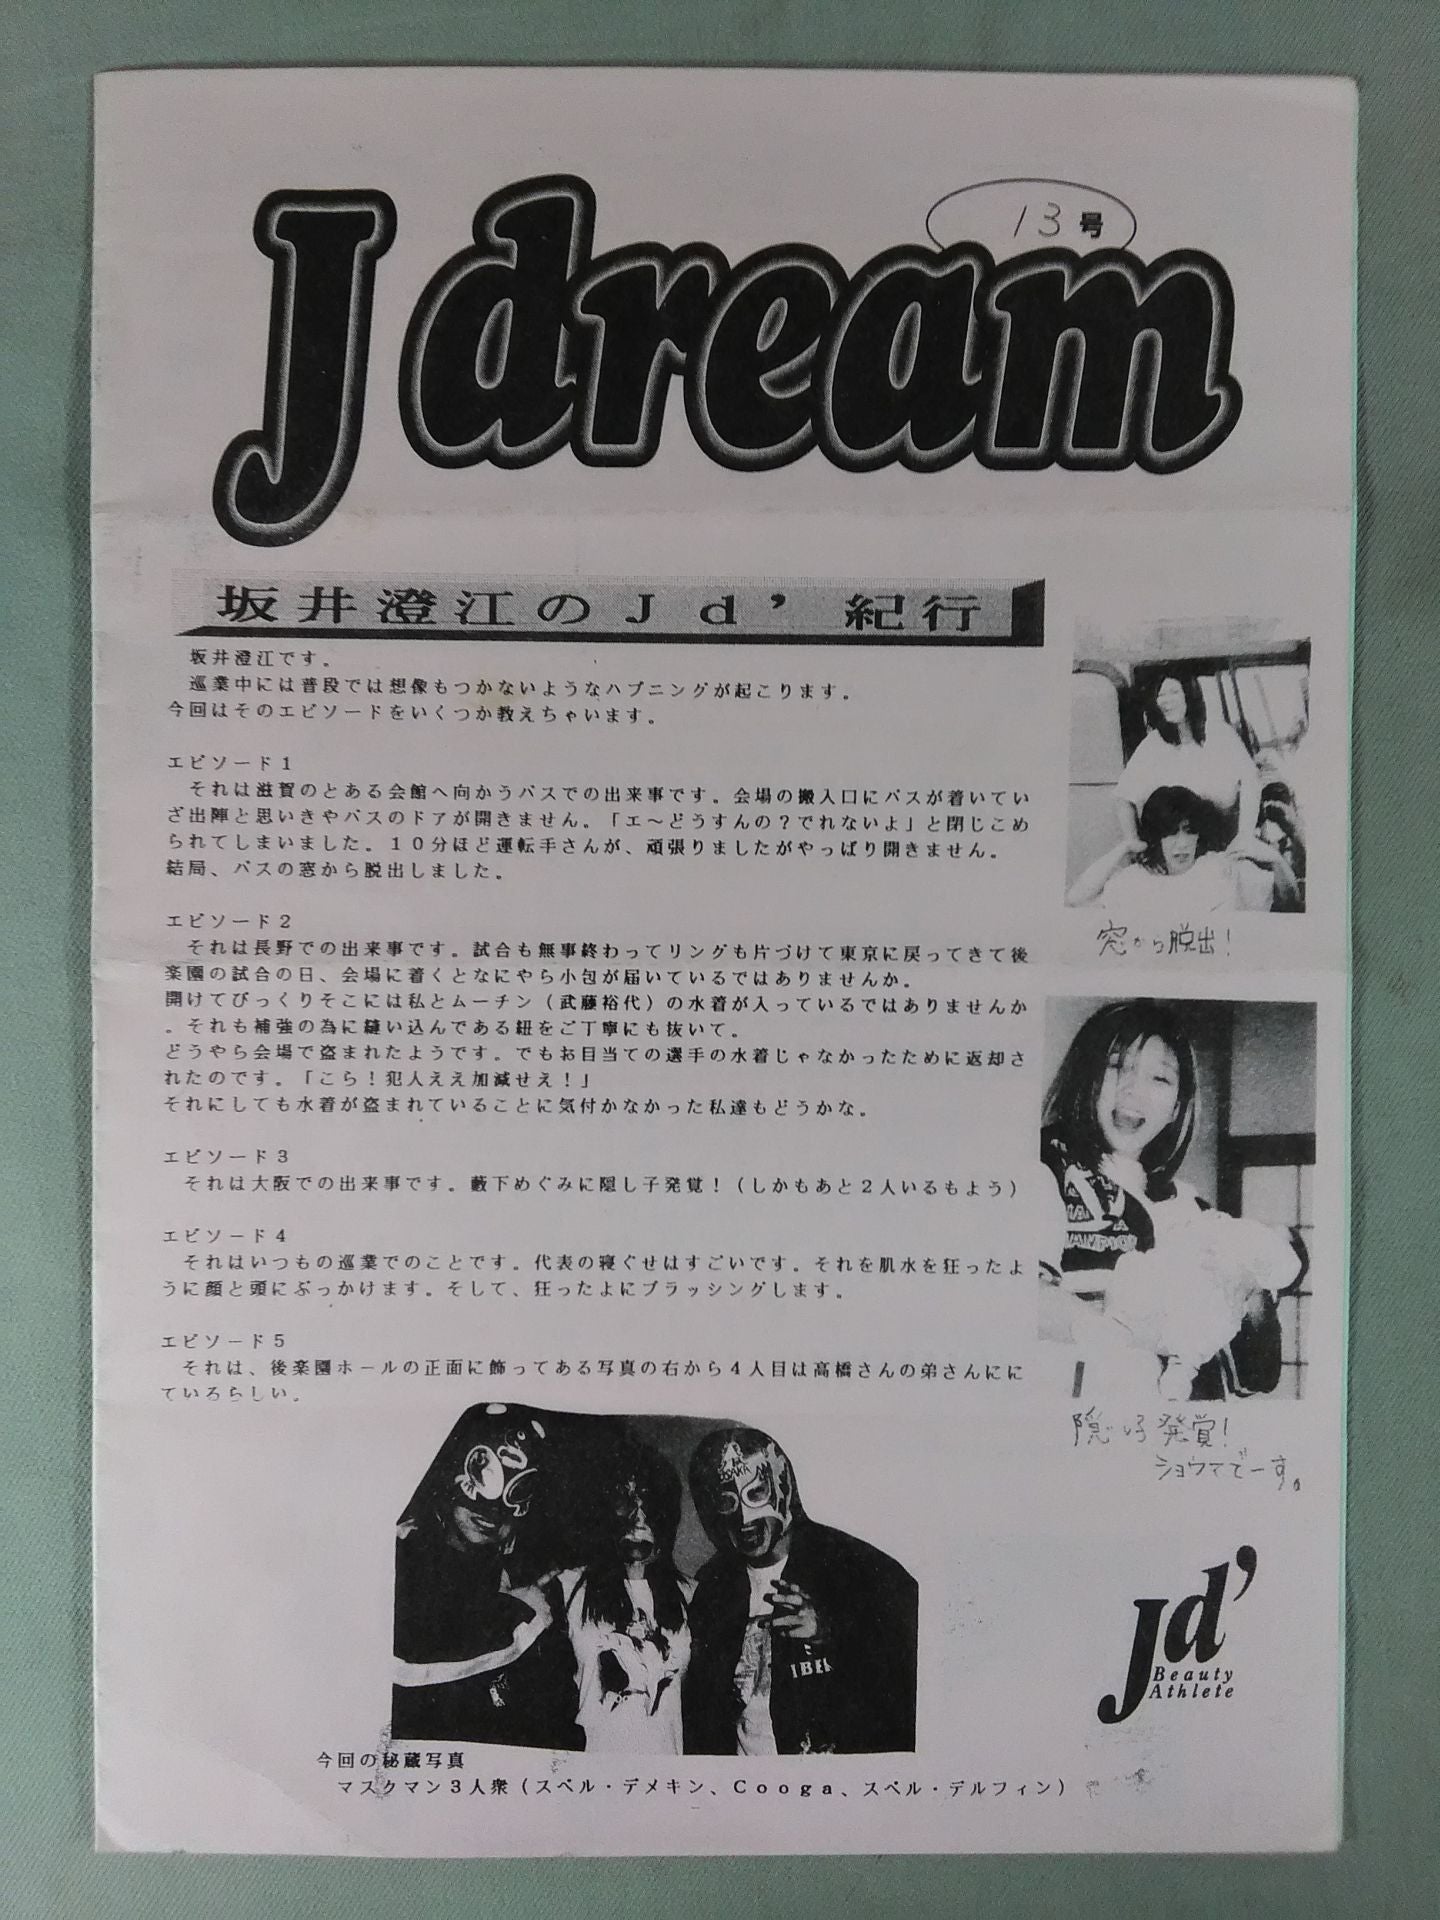 13号
J dream
坂井澄江のＪｄ’紀行
坂井澄江です。
巡業中には普段では想像もつかないようなハプニングが起こります。
今回はそのエピソードをいくつか教えちゃいます。
エピソード１
それは滋賀のとある会館へ向かうバスでの出来事です。会場の搬入口にバスが着いてい
ざ出陣と思いきやバスのドアが開きません。「エ〜どうすんの？でれないよ」と閉じこめ
られてしまいました。１０分ほど運転手さんが、頑張りましたがやっぱり開きません。
結局、バスの窓から脱出しました。
エピソード２
それは長野での出来事です。試合も無事終わってリングも片づけて東京に戻ってきて後
楽園の試合の日、会場に着くとなにやら小包が届いているではありませんか。
開けてびっくりそこには私とムーチン（武藤裕代）の水着が入っているではありませんか
。それも補強の為に縫い込んである紐をご丁寧にも抜いて。
どうやら会場で盗まれたようです。でもお目当ての選手の水着じゃなかったために返却さ
れたのです。「こら！犯人ええ加減せえ！」
それにしても水着が盗まれていることに気付かなかった私達もどうかな。
エピソード３
それは大阪での出来事です。藪下めぐみに隠し子発覚！（しかもあと２人いるもよう）
エピソード４
それはいつもの巡業でのことです。代表の寝ぐせはすごいです。それを肌水を狂ったよ
うに顔と頭にぶっかけます。そして、狂ったよにブラッシングします。
エピソード５
それは、後楽園ホールの正面に飾ってある写真の右から４人目は高橋さんの弟さんにに
ているらしい。
窓から脱出！
隠し子発覚！
ショウてでーす。
OSAKA
IBER
Jd'
Beauty
Athlete
今回の秘蔵写真
マスクマン３人衆（スペル・デメキン、Ｃｏｏｇａ、スペル・デルフィン）